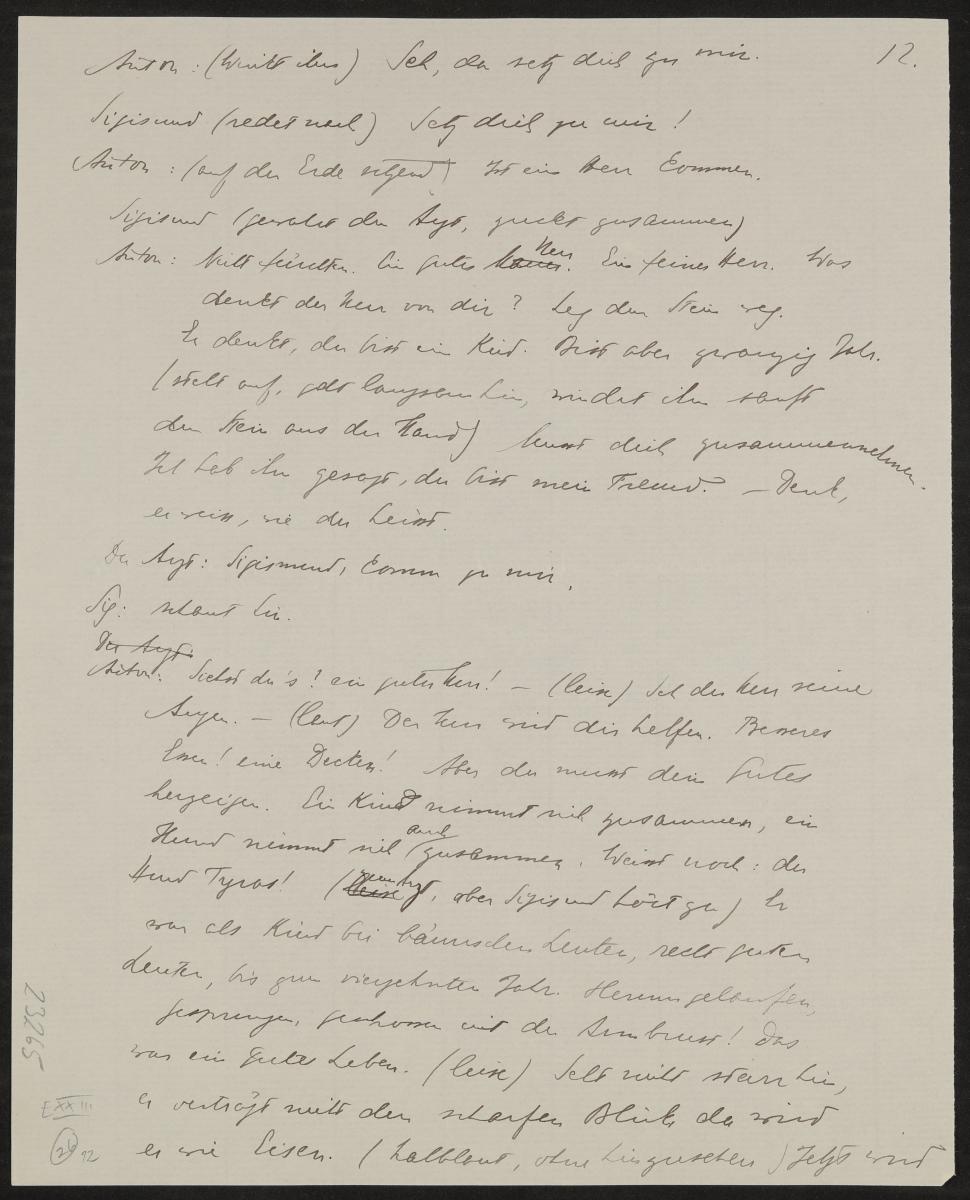 12.
Anton: (winkt ihm) Seh, da setz dich zu mir.
Sigismund (redet nach) Setz dich zu mir!
Anton: (auf der Erde sitzend) Ist ein Herr kommen.
Sigismund (gewahrt den Arzt, zuckt zusammen)
Anton: Nicht fürchten. Ein guter Herr. Ein feiner Herr. Was
denkt der Herr von dir? Leg den Stein weg.
Er denkt, du bist ein Kind. Bist aber zwanzig Jahr.
(steht auf, geht langsam hin, windet ihm sanft
den Stein aus der Hand) Musst dich zusammennehmen.
Ich hab ihm gesagt, du bist mein Freund. – Denk,
er weiss, wie du heisst.
Der Arzt: Sigismund, komm zu mir.
Sig: schaut hin.
Der Arzt:
Anton: Siehst du's? ein guter Herr! – (leise) Seh der Herr seine
Augen. – (laut) Der Herr wird dir helfen. Besseres
Essen! eine Decken! Aber du musst dein Gutes
herzeigen. Ein Kind nimmt sich zusammen, ein
Hund nimmt sich auch zusammen. Weisst noch: der
Hund Tyras! (zum Arzt, aber Sigismund hört zu) Er
war als Kind bei bäurischen Leuten, recht guten
Leuten, bis zum vierzehnten Jahr. Herumgelaufen,
gesprungen, geschossen mit der Armbrust! Das
war ein gutes Leben. (leise) Seht nicht starr hin,
er verträgt nicht den scharfen Blick da wird
er wie Eisen. (halblaut, ohne hinzusehen) Jetzt wird
23265
E XXIII
26 12